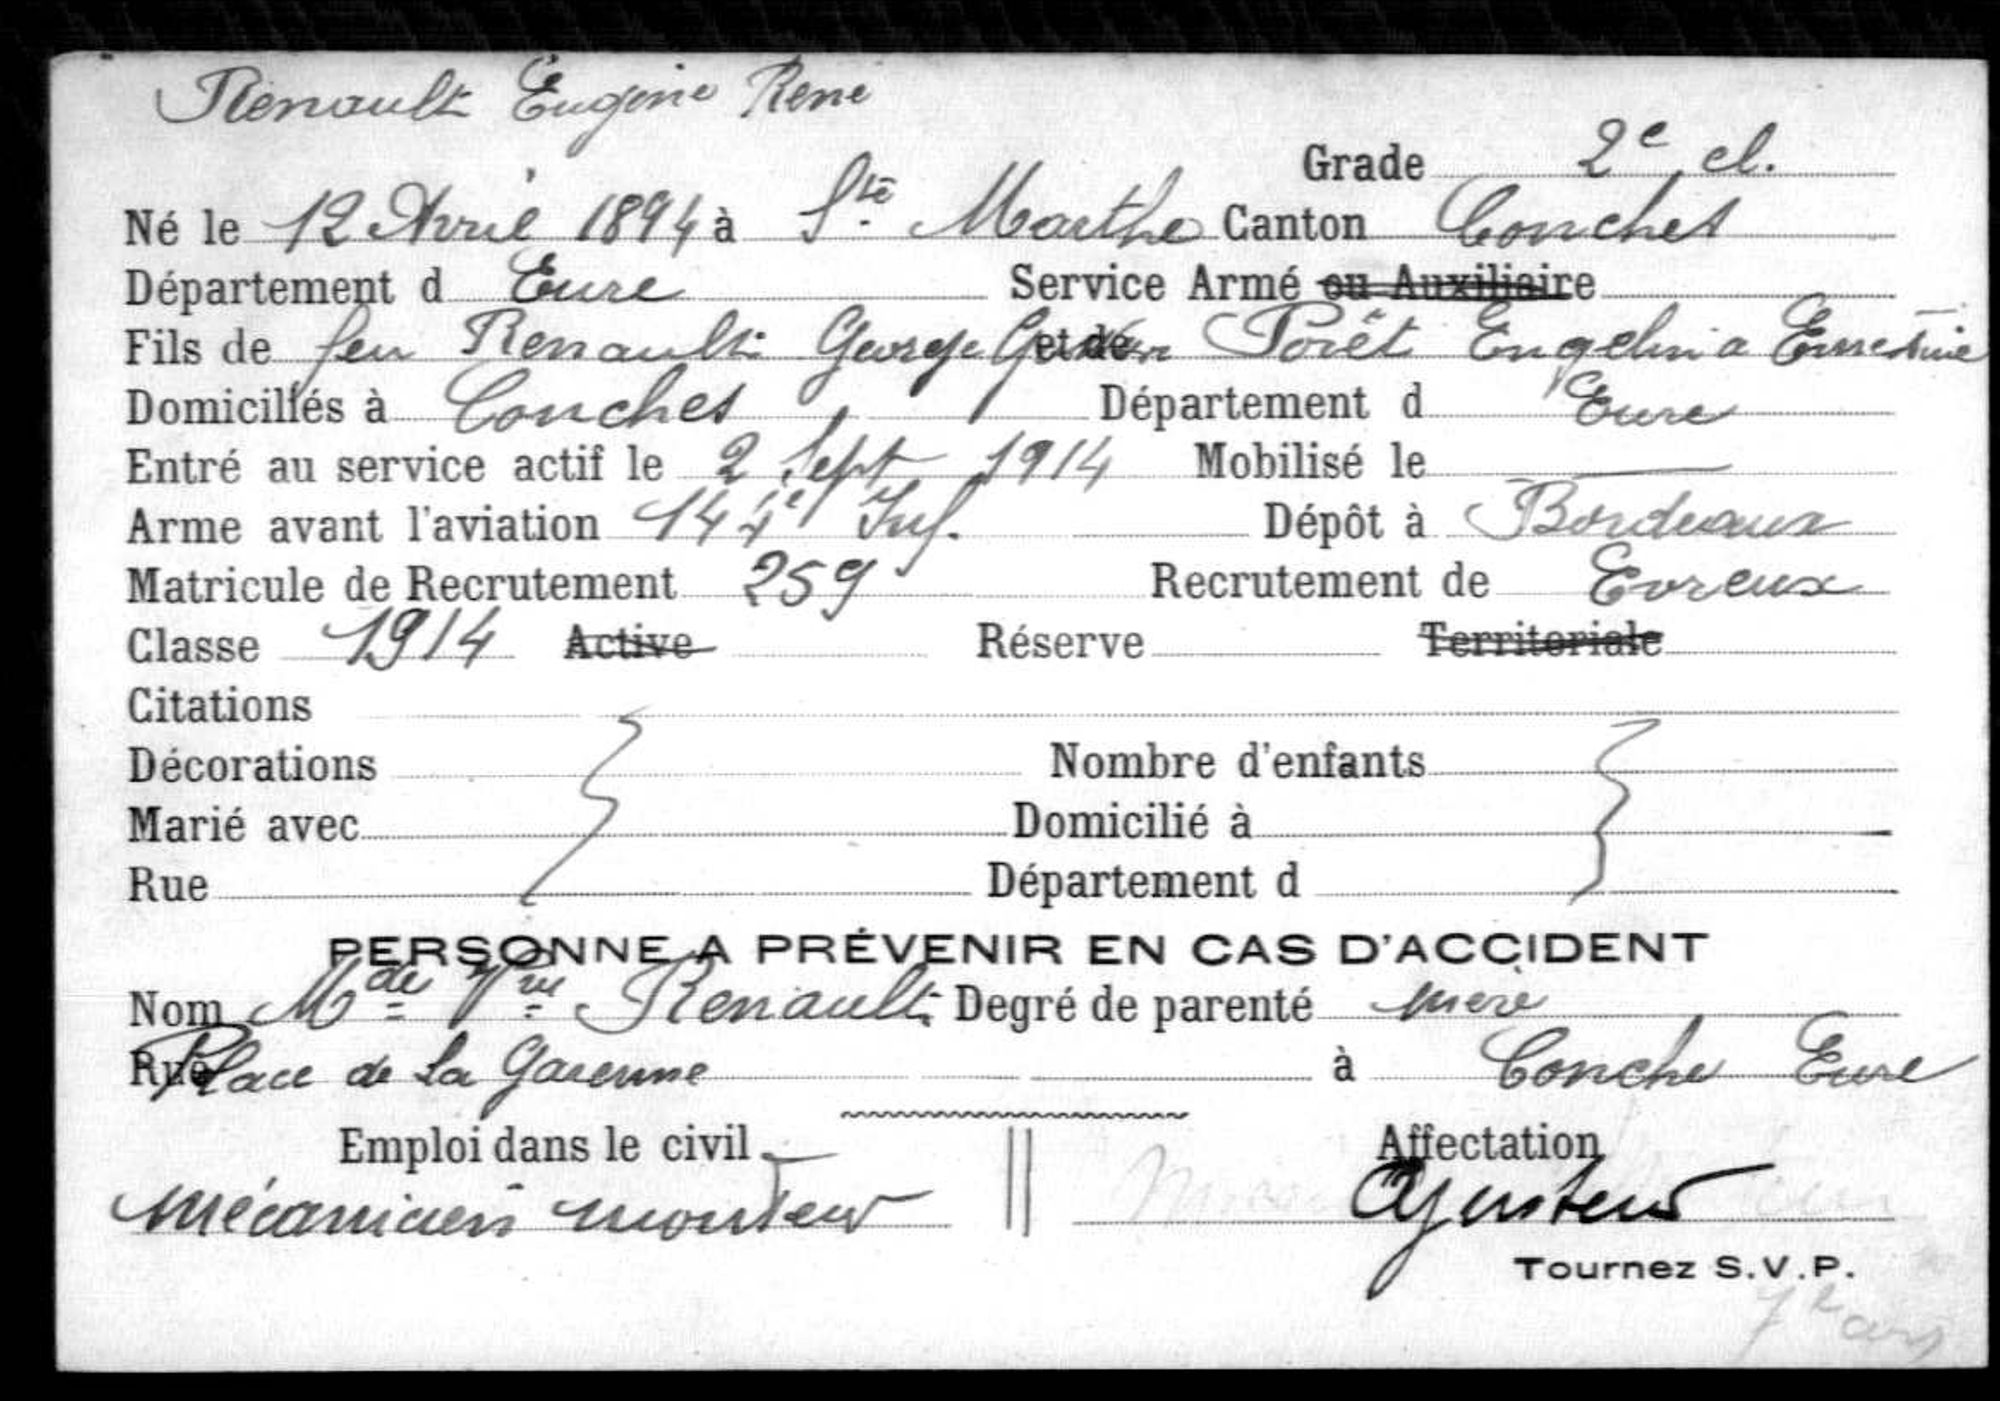 Renault Eugène René
Grade 2e cl.
Né le 12 Avril 1894 à Ste Marthe Canton Conches
Département d Eure Service Armé ou Auxiliaire
Fils de feu Renault George et de Porêt Engelina Ernestine
Domiciliés à Conches Département d Eure
Entré au service actif le 2 Sept 1914 Mobilisé le
Arme avant l'aviation 144e Inf. Dépôt à Bordeaux
Matricule de Recrutement 259 Recrutement de Evreux
Classe 1914 Active Réserve Territoriale
Citations
Décorations Nombre d'enfants
Marié avec Domicilié à
Rue Département d
PERSONNE A PRÉVENIR EN CAS D'ACCIDENT
Nom Mde Vve Renault Degré de parenté mère
Rue Place de la Garenne à Conche Eure
Emploi dans le civil Affectation
mécanicien monteur Ajusteur
Tournez S.V.P.